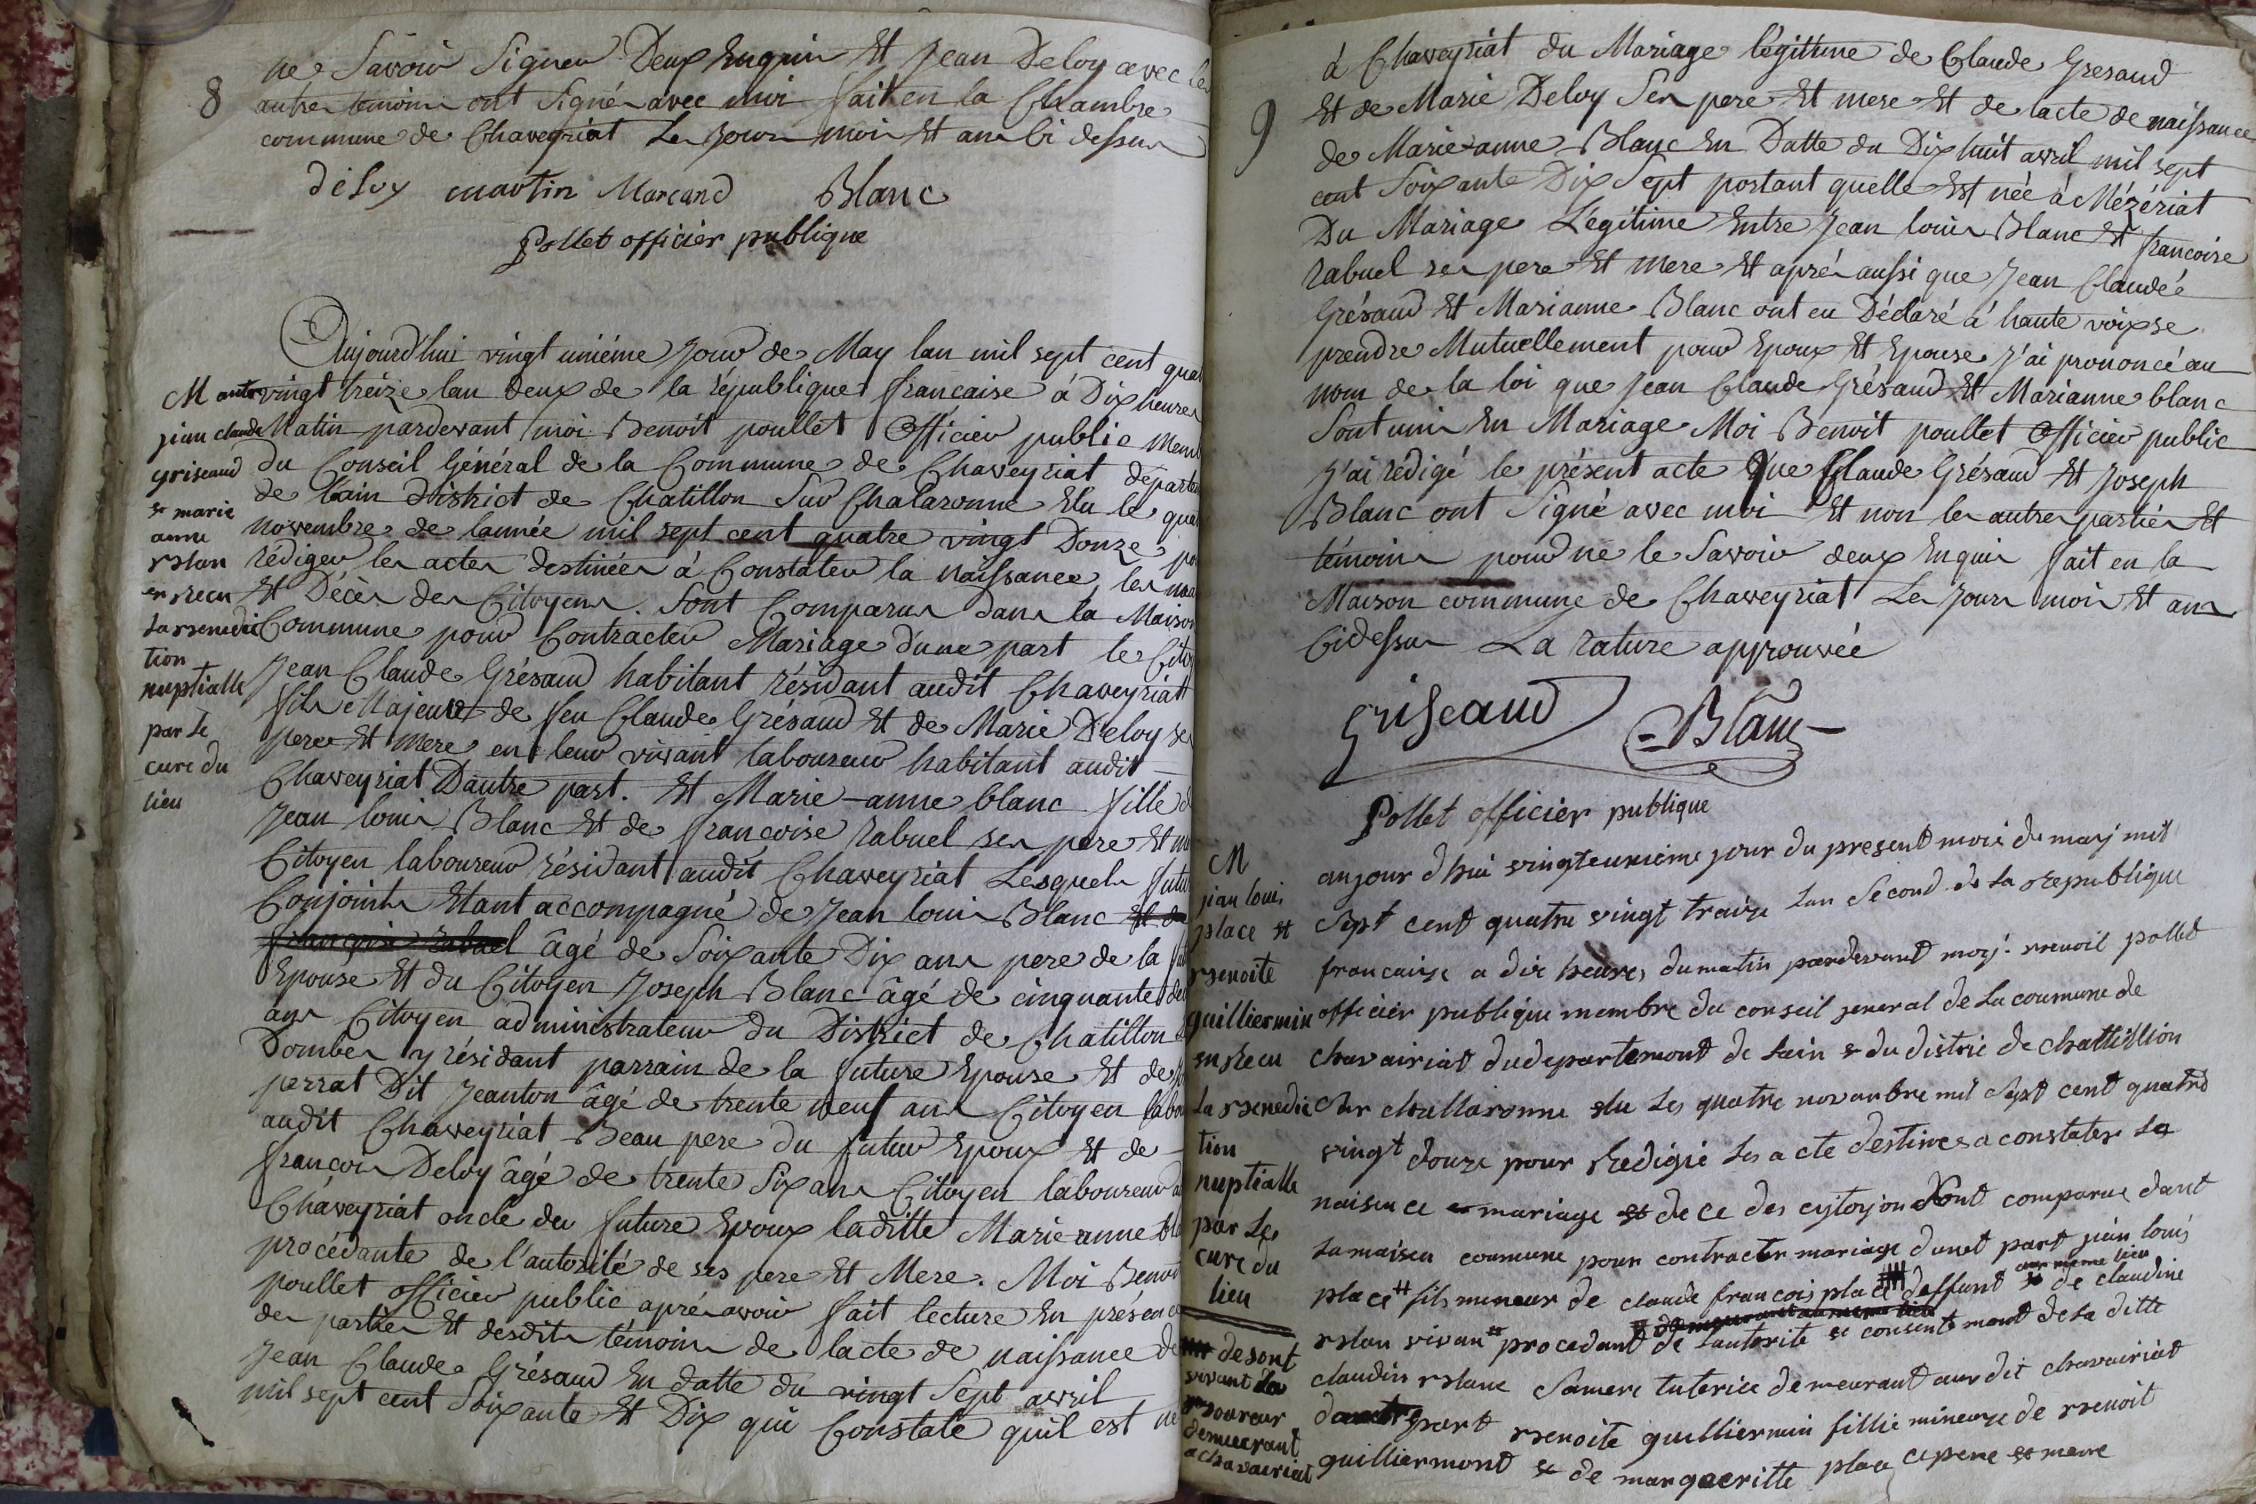 8
ne Savoir Signer Deux Enquis Et Jean Deloy avec les
autres temoins ont Signés avec moi fait en la Chambre
commune de Chaveyriat Les Jours mois Et ans Ci dessus
déloy martin Marcand Blanc
Pollet officier publique
Aujourd'hui vingt uniéme Jour de May lan mil sept cent quat
vingt treize lan deux de la république francaise à Dix heures
Matin pardevant moi Benoit poullet Officier public Mem
du Conseil Général de la Commune de Chaveyriat départe
de lain District de Chatillon Sur Chalaronne Elu le qua
novembre de lannée mil sept cent quatre vingt Douze po
rédiger les actes destinées à Constater la naissance, les ma
Et Décès des Citoyens. Sont Comparus dans la Maison
Commune pour Contracter Mariage dune part le Cito
Jean Claude Grésaud habitant résidant audit Chaveyriat
fils Majeur de feu Claude Grésaud Et de Marie Deloy ses
pere Et mere en leur vivant laboureur habitant audit
Chaveyriat Dautre part. Et Marie-anne blanc fille d
Jean louis Blanc Et de françoise rabuel ses pere Et m
Citoyen laboureur résidant audit Chaveyriat Lesquels futu
Conjoints Etant accompagné de Jean louis Blanc Et de
françoise rabuel âgé de Soixante Dix ans pere de la fut
Epouse Et du Citoyen Joseph Blanc âgé de cinquante de
ans Citoyen administrateur du District de Chatillon
Dombes y résidant parrain de la future Epouse Et de
perrat Dit Jeanton âgé de trente neuf ans Citoyen labou
audit Chaveyriat Beau pere du futur Epoux Et de
françois Deloy âgé de trente Six ans Citoyen laboureur a
Chaveyriat oncle du future Epoux laditte Marie-anne bla
procédante de l'autorité de ses pere Et Mere. Moi Benoi
poullet officier public aprés avoir fait lecture En présence
des parties Et desdits témoins de lacte de naissance de
Jean Claude Grésaud En datte du vingt Sept avril
mil sept cent Soixante Et Dix qui Constate quil est né
M ante
jian claude
griseaud
& marie
anne
blan
en recu
La benedic
tion
nuptialle
par Le
cure du
lieu
9
à Chaveyriat du Mariage légittime de Claude Gresaud
Et de Marie Deloy Ses pere Et mere Et de lacte de naissance
de Marie-anne Blanc En Datte du Dix huit avril mil sept
cent Soixante Dix Sept portant quelle Est née à Mézériat
Du Mariage Légitime Entre Jean louis Blanc Et francoise
rabuel ses pere Et mere Et aprés aussi que Jean Claudé
Grésaud Et Marianne Blanc ont eu Déclaré à haute voix se
prendre Mutuellement pour Epoux Et Epouse J'ai prononcé au
nom de la loi que Jean Claude Grésaud Et Marianne blanc
Sont unis En Mariage Moi Benoit poullet Officier public
J'ai rédigé le présent acte Que Claude Grésaud Et Joseph
Blanc ont Signé avec moi Et non les autres parties Et
témoins pour ne le Savoir deux Enquis fait en la
Maison commune de Chaveyriat Les Jours mois Et ans
Cidessus La rature approuvée
Griseaud Blanc
Pollet officier publique
aujour dhui vingteunieme jour du present mois du may mil
sept cent quatre vingt traize Lan Second de La republique
francaise a dix heures dumatin pardevant moy benoit pollet
officier publique membre du conseil jeneral de La coumune de
chavairiat dudepartement de Lain & du distric de chattillion
sur challaronne elu Les quatre novanbre mil sept cent quatre
vingt douze pour redigié Les acte destines a constater La
naisence mariage et de ce des cytoyon Sont comparue dant
Lamaison coumune pour contracter mariage dunet part jian louis
place fils mineur de claude francois place deffunt & de claudine
aux meme lieu
blan vivan procedant de Lautorité & consentemant de La ditte
claudine blanc Samere tuterice demeurant audit chavairiat
dautre part benoite guilliermin fillie mineure de benoit
guilliermont & de margueritte place cepere et mere
M
jian louis
place et
benoite
guilliermin
en recu
La benedic
tion
nuptialle
par Les
cure du
lieu
de sont
vivant
Laboureur
demeurant
a chavairiat